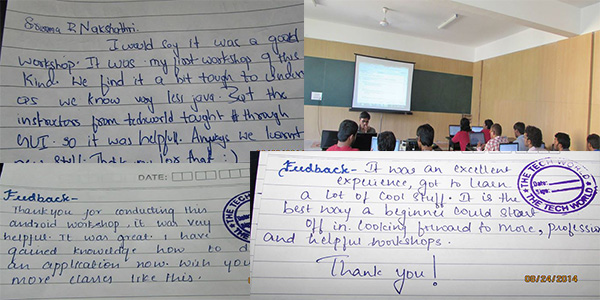 Nakshathri.
I would say it was a good
workshop. It was my first workshop of this
kind. We find it a bit tough to under
cos we know very less java. But the
instructors from techworld taught through
GUI. so it was helpful. Anyways we learnt
new stuff. Thank you for that :)
DATE:
Feedback-
Thank you for conducting this
android workshop. it was very
helpful. It was great. I have
gained knowledge how to d
an application now. Wish you
more classes like this.
THE TECH WORLD
Feedback- It was an excellent
experience, got to learn
a lot of cool stuff. It is the
best way a beginner could start
off in. Looking forward to more, professio
and helpful workshops.
Thank you!
THE TECH WORLD
Date:
Sign:
THE TECH WORLD
08/24/2014